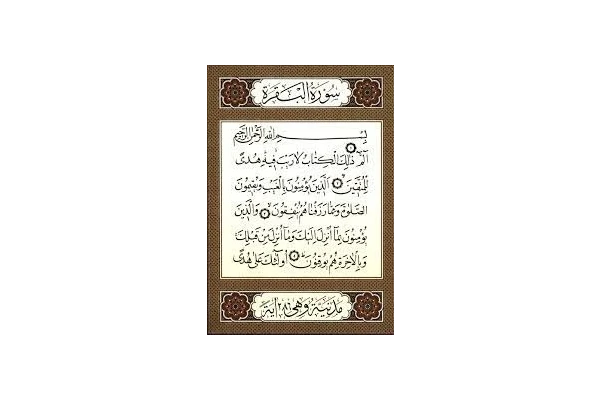 سورة البقرة
بسم الله الرحمن الرحيم
الم ذلك الكتاب لا ريب فيه هدى
للمتقين الذين يؤمنون بالغيب ويقيمون
الصلوة ومما رزقناهم ينفقون والذين
يؤمنون بما أنزل إليك وما أنزل من قبلك
وبالآخرة هم يوقنون أولئك على هدى
مدنية وهي آية